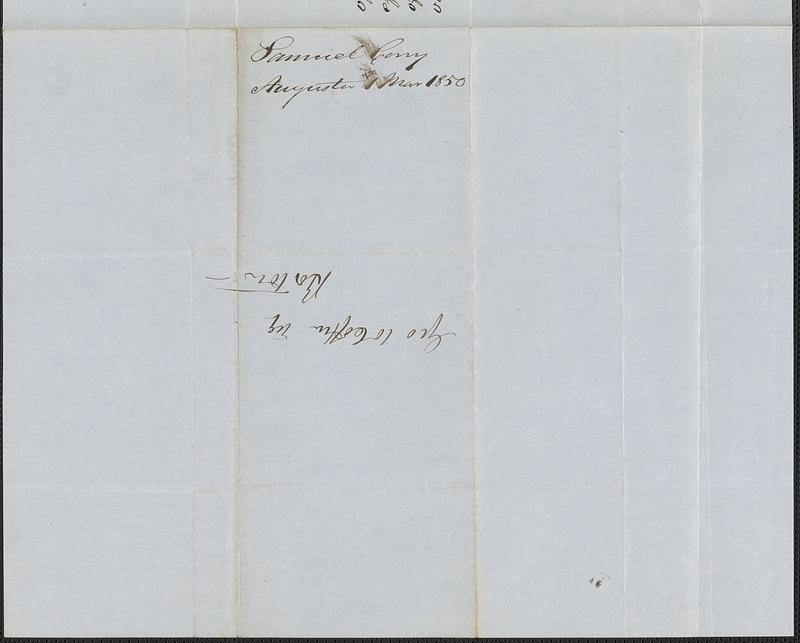 Samuel Cony
Augusta 1 Mar 1850
Geo W Coffin Esq
Boston